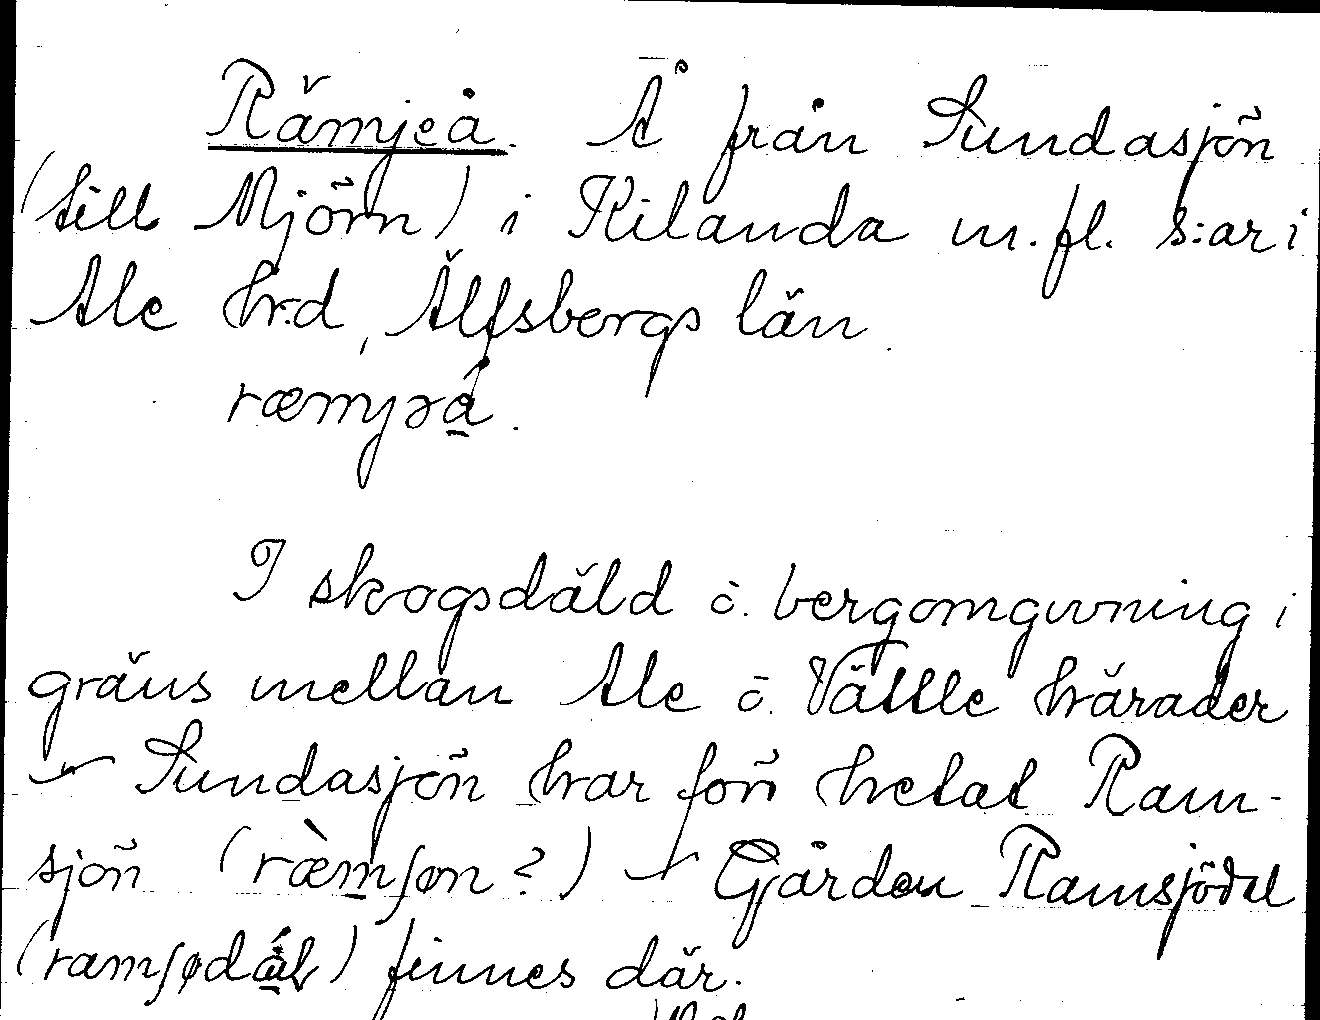 Rämjeå. Å från Sundasjön
(till Mjörn) i Kilanda m.fl. s:ar i
Ale h:d, Älfsborgs län.
ræmjəå.
I skogsdäld o. bergomgivning i
gräns mellan Ale o. Vättle härader
— Sundasjön har förr hetat Ram-
sjön (ræmʃøn?) — Gården Ramsjödal
(ramʃødal) finnes där.